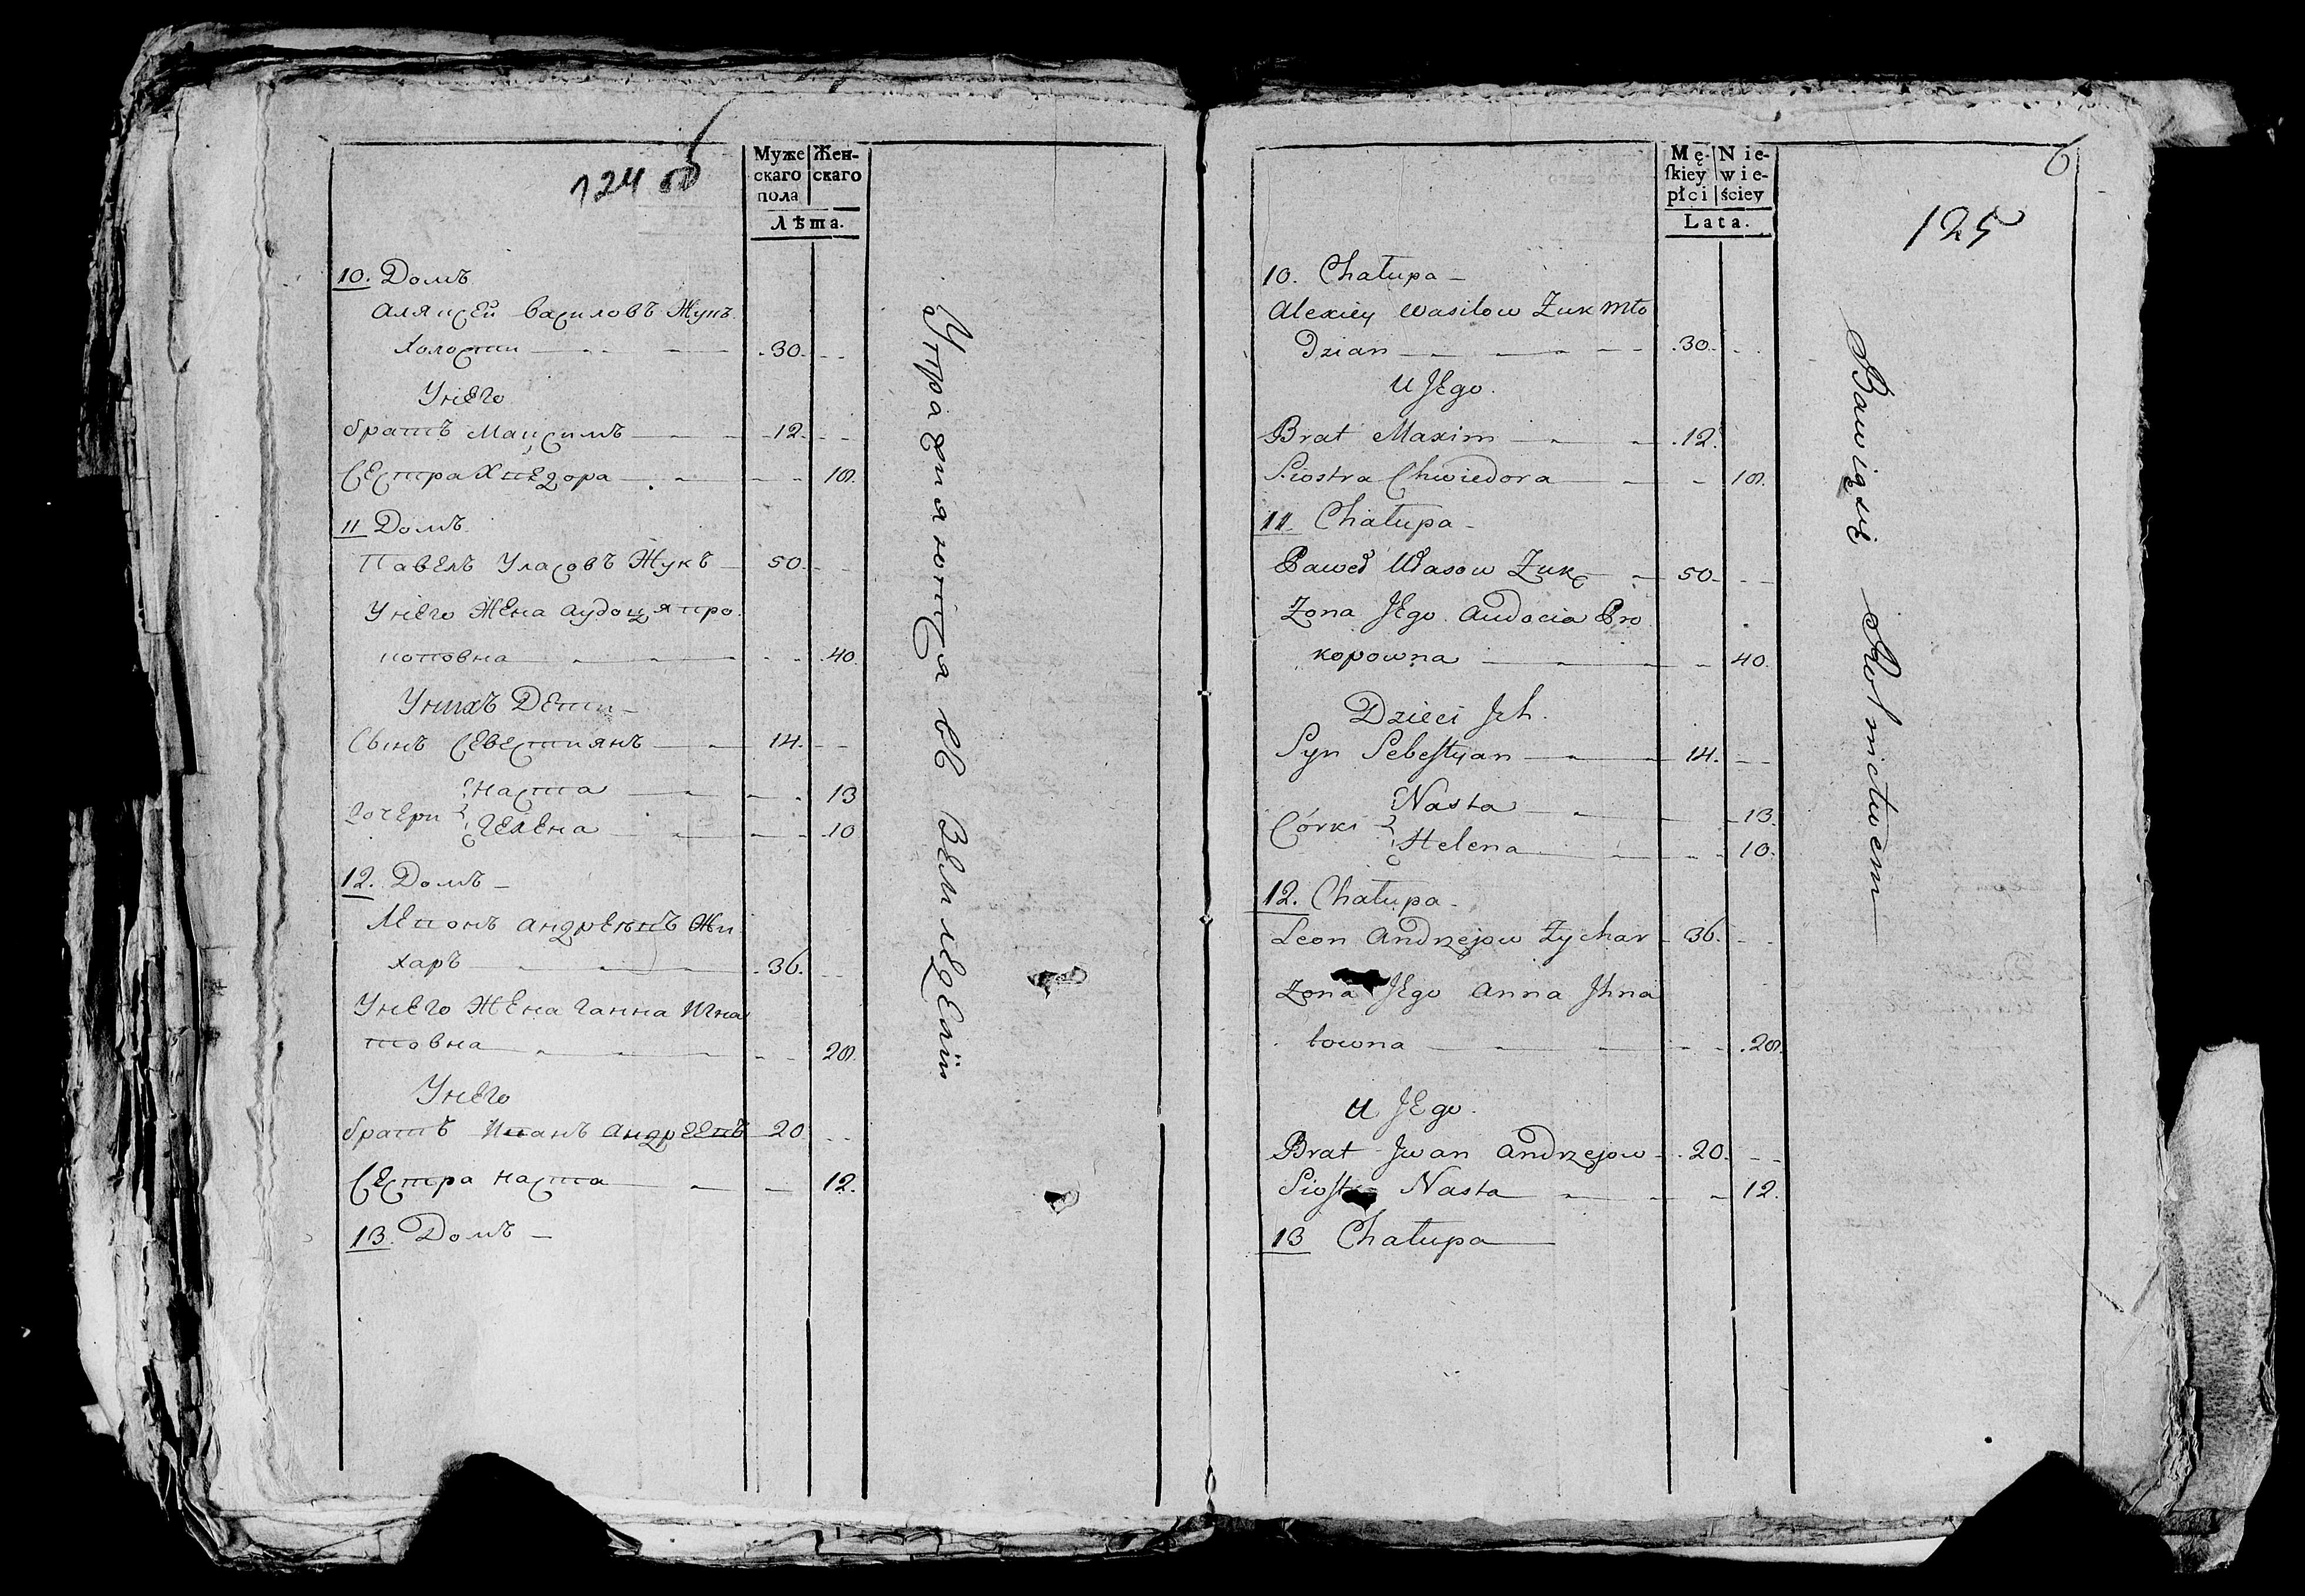 124 об
Муже Жен-
скаго скаго
пола
Лѣта.
10. Домъ
Аляксей Василовъ Жукъ
Холости 30.
У него
братъ Максимъ 12.
Сестра Хведора 18.
11 Домъ
Павелъ Уласовъ Жукъ 50.
У него Жена Аудоця про
коповна 40.
У нихъ Дети
Сынъ Севестиянъ 14.
Наста 13
дочери
Гелена 10
12. Домъ
Левонъ Андреевъ Жи
харъ 36.
У него Жена Ганна Игна
товна 28.
У него
братъ Иванъ Андреевъ 20
Сестра Наста 12.
13. Домъ
Упражняются въ Земледелiи
6
125
Mę- Nie-
ſkiey wie-
płci ściey
Lata.
10. Chałupa
Alexiey Wasilow Żuk Mło
Dzian 30.
U Jego.
Brat Maxim 12.
Siostra Chwiedora 18.
11. Chałupa
Paweł Ułasow Żuk 50.
Żona Jego Audocia Pro
kopowna 40.
Dzieci Jch.
Syn Sebeſtyan 14.
Nasta 13.
Córki
Helena 10.
12. Chałupa
Leon Andrzejow Żychar 36.
Żona Jego Anna Jhna
towna 28.
U Jego.
Brat Jwan Andrzejow 20.
Nasta 12.
13 Chałupa
Bawią się Rolnictwem